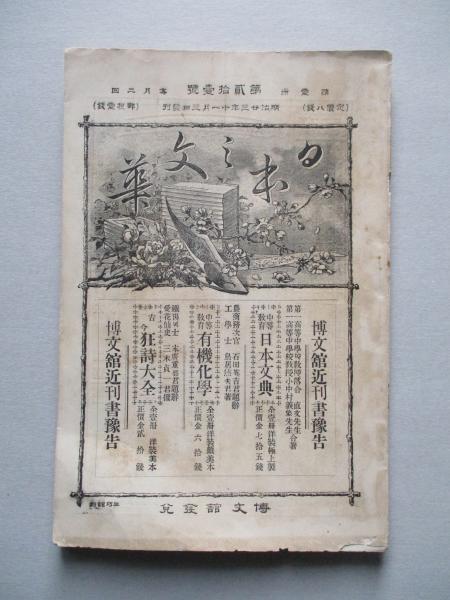 第壹册 第貳拾壹號 每月二回
(定價八錢) 明治廿三年十一月三日發刊 (郵稅壹錢)
日本之文華
博文館近刊書豫告
第一高等中學校教授落合直文先生
第一高等中學校教授小中村義象先生合著
中等教育 日本文典
全壹冊洋裝極上製
正價金七十五錢
農商務次官 石田英吉君題辭
工學士
中等教育 有機化學
全壹冊洋裝美本
正價金六拾錢
鐵
愛花仙史 三木貞一君選
古今 狂詩大全
全壹冊洋裝美本
正價金貳拾錢
博文館近刊書豫告
博文館發兌